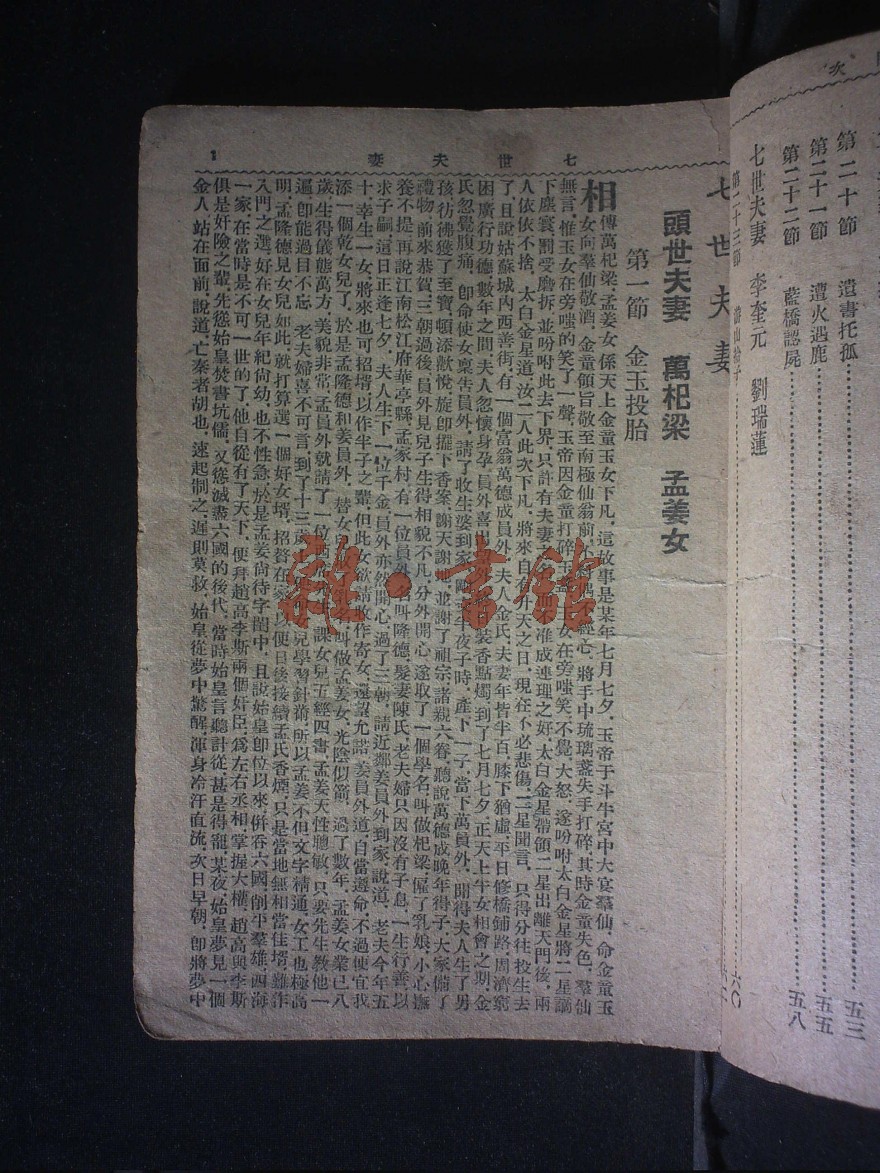 次
第二十節 遺書托孤……五三
第二十一節 遭火遇鹿……五五
第二十二節 藍橋認屍……五八
七世夫妻 李奎元 劉瑞蓮
第二十三節 六〇
七世夫妻
1
七世夫妻
頭世夫妻 萬杞梁 孟姜女
第一節 金玉投胎
相傳萬杞梁、孟姜女、係天上金童玉女下凡、這故事是某年七月七夕、玉帝于斗牛宮中大宴羣仙、命金童玉
女向羣仙敬酒、金童領旨敬至南極仙翁前、將手中琉璃盞失手打碎、其時金童失色、羣仙
無言、惟玉女在旁嗤的笑了一聲、玉帝因金童打碎玉盞、玉女在旁嗤笑、不覺大怒、遂吩咐太白金星將二星謫
下塵寰、罰受磨折、並吩咐此去下界、只許有夫妻之 准成連理之好、太白金星帶領二星出離天門後、兩
人依依不捨、太白金星道、汝二人此次下凡、將來自有升天之日、現在不必悲傷、二星聞言、只得分往投生去
了、且說姑蘇城內西善街、有一個富翁萬德成員外、夫人金氏、夫妻年皆半百、膝下猶虛、平日修橋鋪路、周濟窮
困、廣行功德、數年之間、夫人忽懷身孕、員外喜出 裝香點燭、到了七月七夕、正天上牛女相會之期、金
氏忽覺腹痛、卽命使女稟告員外、請了收生婆到家、 半夜子時、產下一子、當下萬員外、聞得夫人生了男
孩、彷彿獲了至寶、頓添歡悅、旋卽擺下香案、謝天謝 並謝了祖宗、諸親六眷、聽說萬德成晚年得子、大家備了
禮物、前來恭賀、三朝過後、員外見兒子生得相貌不凡、分外開心、遂取了一個學名、叫做杞梁、僱了乳娘、小心撫
養不提、再說江南松江府華亭縣、孟家村、有一位員外、名叫隆德、髮妻陳氏、老夫婦只因沒有子息、一生行善、以
求子嗣、這日正逢七夕、夫人生下一位千金、員外亦然開心、過了三朝、請近鄰姜員外到家說道、老夫今年五
十、幸生一女、將來也可招壻、以作半子之輩、但此女欲請收作寄女、還望允諾、姜員外道、自當遵命、不過便宜我
添一個乾女兒了、於是孟隆德和姜員外、替女 叫做孟姜女、光陰似箭、過了數年、孟姜女業已八
歲、生得儀態萬方、美貌非常、孟員外就請了一位 課女兒五經四書、孟姜天性聰敏、只要先生教他一
遍、卽能過目不忘、老夫婦喜不可言、到了十三歲 兒學習針黹、所以孟姜不但文字精通、女工也極高
明、孟隆德見女兒如此、就打算選一個好女壻、招贅在家、以便日後接續孟氏香煙、只是當地無相當佳壻、難作
入門之選、好在女兒年紀尙幼、也不性急、於是孟姜尙待字閨中、且說始皇卽位以來、併吞六國、削平羣雄、四海
一家、在當時是不可一世的了、他自從有了天下、便拜趙高李斯兩個奸臣、爲左右丞相、掌握大權、趙高與李斯
俱是奸險之輩、先慫始皇焚書坑儒、又慫滅盡六國的後代、當時始皇言聽計從、甚是得寵、某夜、始皇夢見一個
金人、站在面前、說道、亡秦者胡也、速起制之、遲則莫救、始皇從夢中驚醒、渾身冷汗直流、次日早朝、卽將夢中
雜·書館